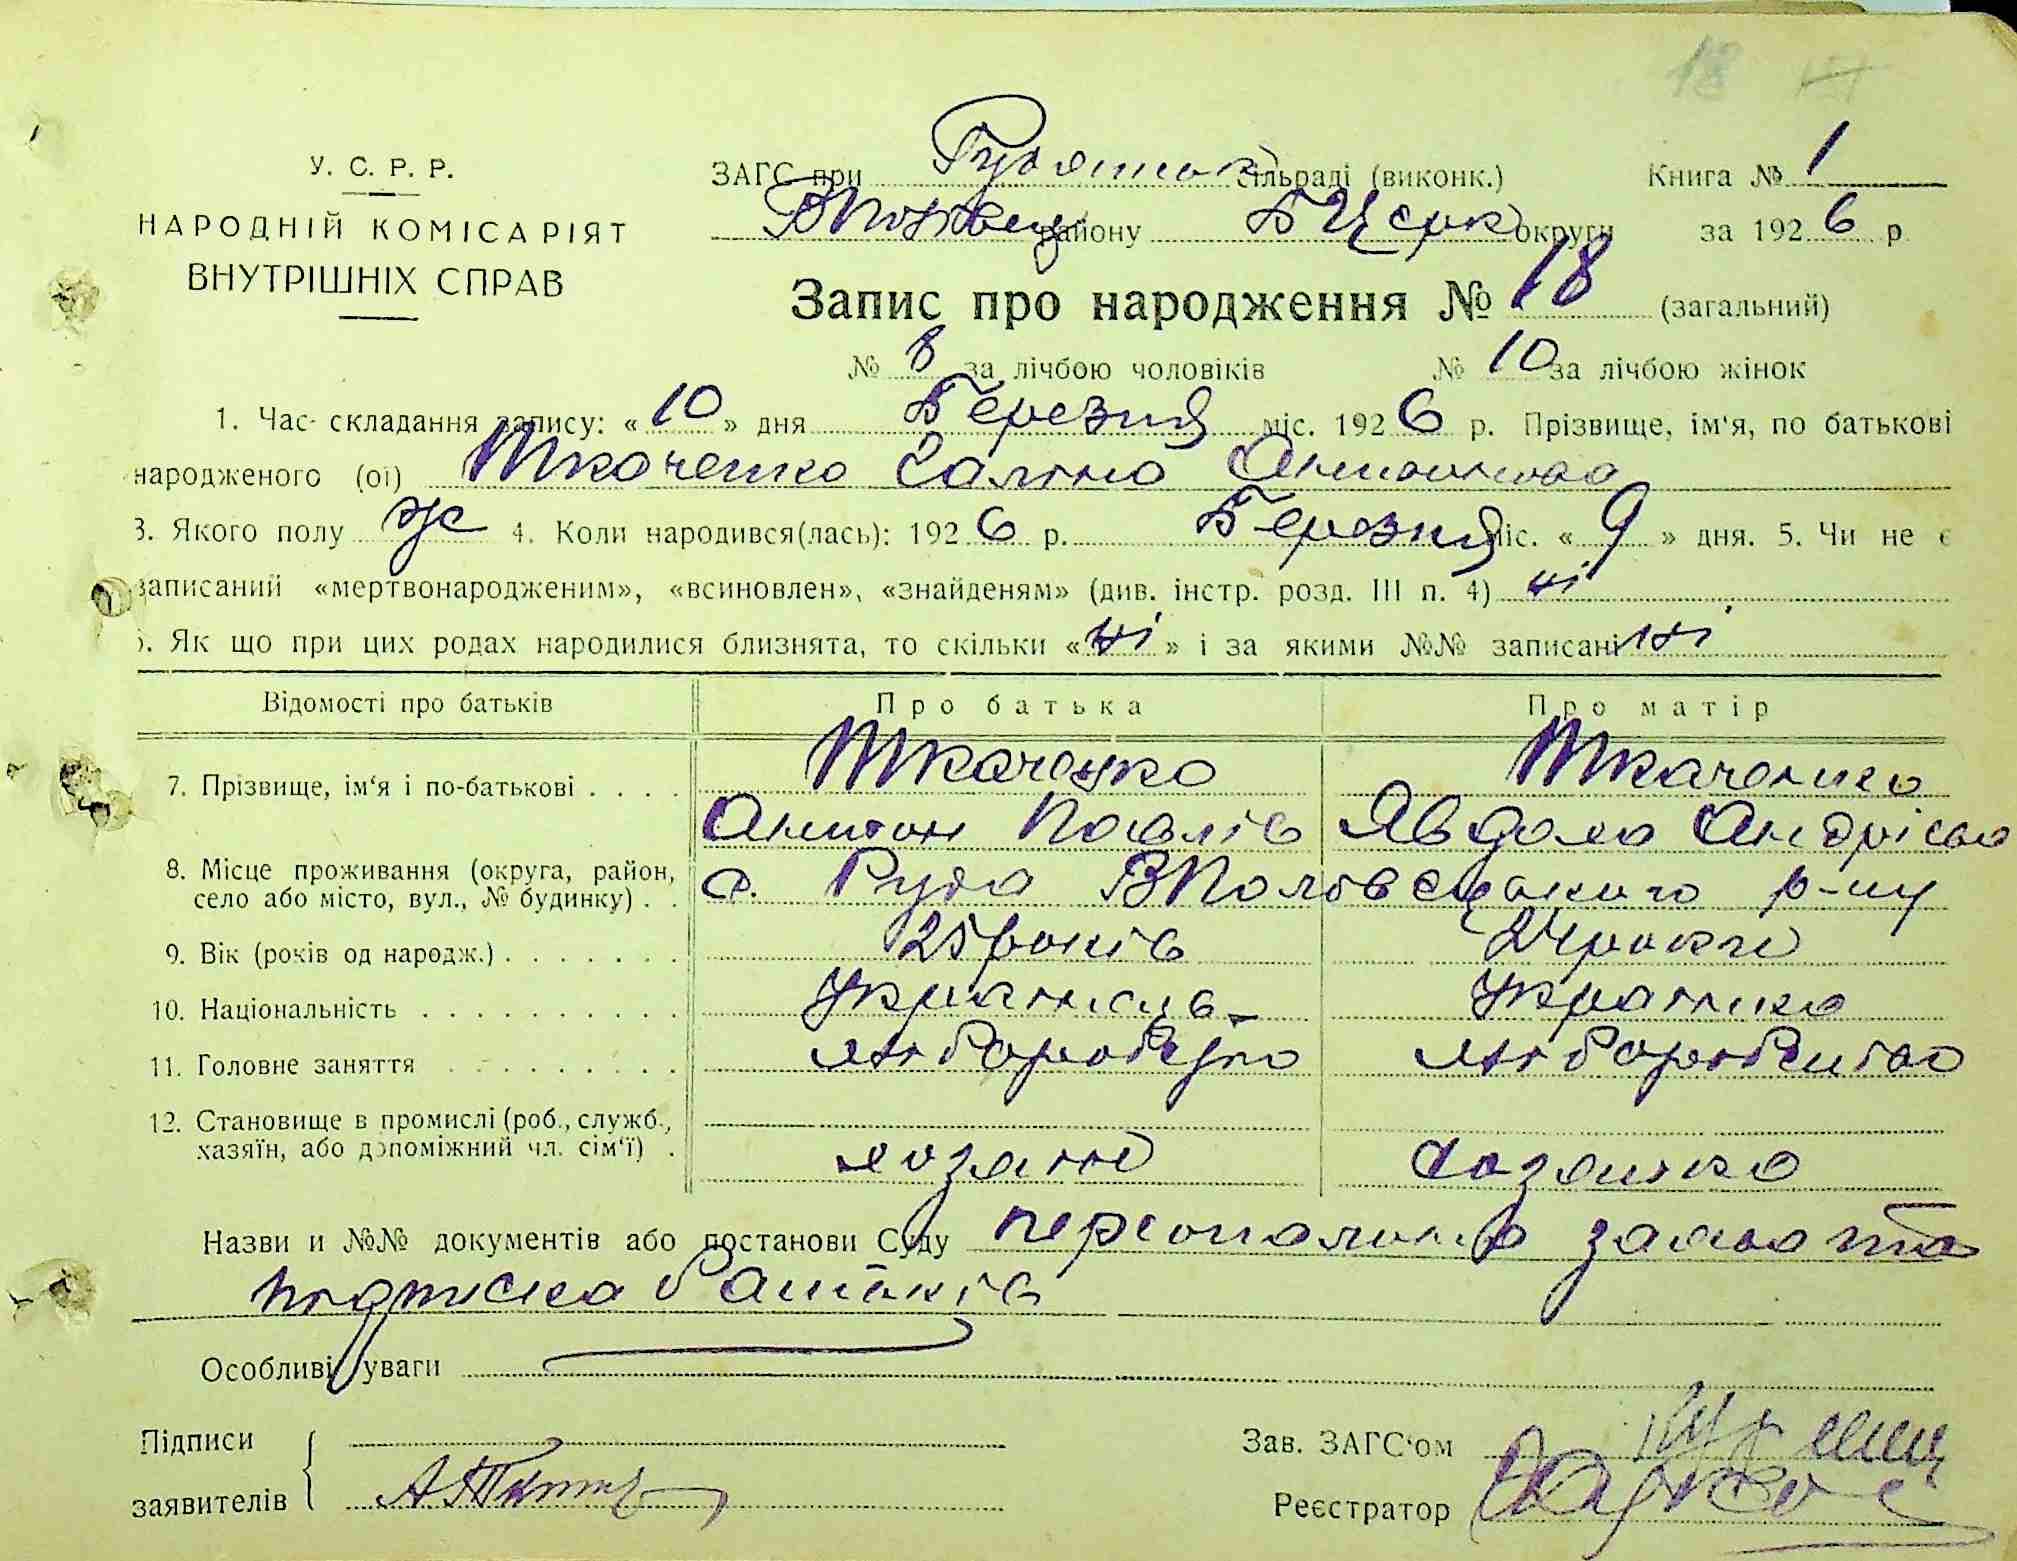 18
У. С. Р. Р.
НАРОДНІЙ КОМІСАРІЯТ
ВНУТРІШНІХ СПРАВ
ЗАГС при Рудянськ сільраді (виконк.) Книга № 1
ВПоловец району БЦерк округи за 1926 р
Запис про народження № 18 (загальний)
№ 8 за лічбою чоловіків № 10 за лічбою жінок
1. Час складання запису: «10» дня Березня міс. 1926 р. Прізвище, ім'я, по батькові
народженого (ої) Ткаченко Галина Антонова
3. Якого полу ж 4. Коли народився(лась): 1926 р. Березня міс. «9» дня. 5. Чи не є
записаний «мертвонародженим», «всиновлен», «знайденям» (див. інстр. розд. III п. 4) ні
6. Як що при цих родах народилися близнята, то скільки «ні» і за якими №№ записані ні
Відомості про батьків Про батька Про матір
7. Прізвище, ім'я і по-батькові . . . . Ткаченко Ткаченко
Антон Павлів Явдоха Андрієва
8. Місце проживання (округа, район,
село або місто, вул., № будинку) . . с. Руда ВПоловецького р-ну
9. Вік (років од народж.) . . . . . . . 25 років 24 роки
10. Національність . . . . . . . . . . Українець Українка
11. Головне заняття . . . . . . . . . хліборобство хліборобство
12. Становище в промислі (роб., служб.,
хазяїн, або допоміжний чл. сім'ї) . хозяїн хозяйка
Назви и №№ документів або постанови Суду персональна заява та
подписка батьків
Особливі уваги
Підписи
заявителів
Зав. ЗАГС'ом
Реєстратор